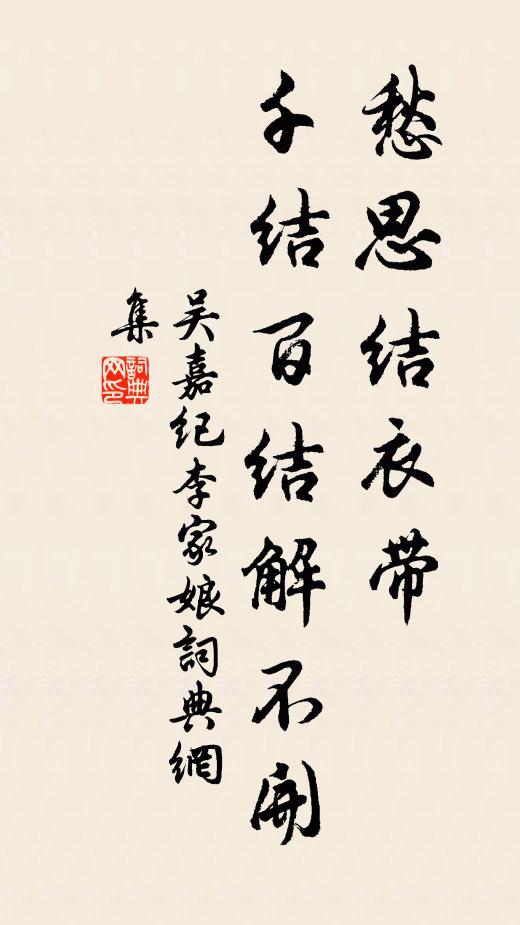 愁思结衣带
千结百结解不開
吴嘉纪李家娘詞典網
集
詞典网印